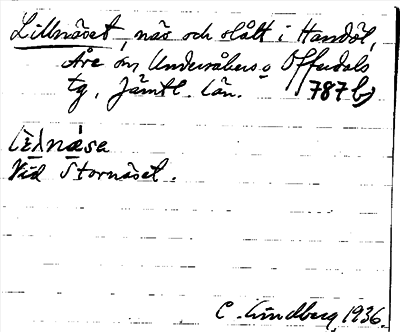 Lillnäset, näs och slått i Handöl,
Åre sn, Undersåkers o Offerdals
tg, Jämtl. län. 787 b)
Vid Stornäset.
C. Lindberg 1936.